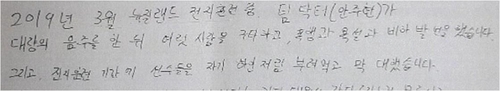 2019년 3월 뉴질랜드 전지훈련 중, 팀 닥터(안주현)가
대량의 음주를 한 뒤 여럿 시간을 구타하고, 폭행과 욕설과 비하 발언을 했습니다
그리고, 전지훈련 기간 끼 선수들을 자기 하면처럼 부려먹고 막 대했습니다.